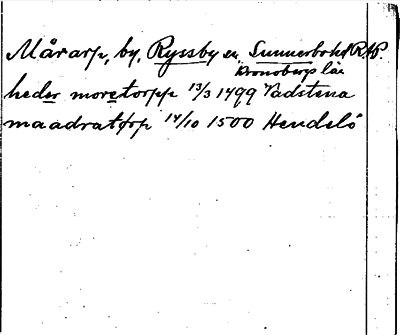 Mårarp, by, Ryssby sn Sunnerbo hd RAP.
Kronobergs län
heder moretorpp 13/3 1499 Vadstena
maadratorp 14/10 1500 Hendelö